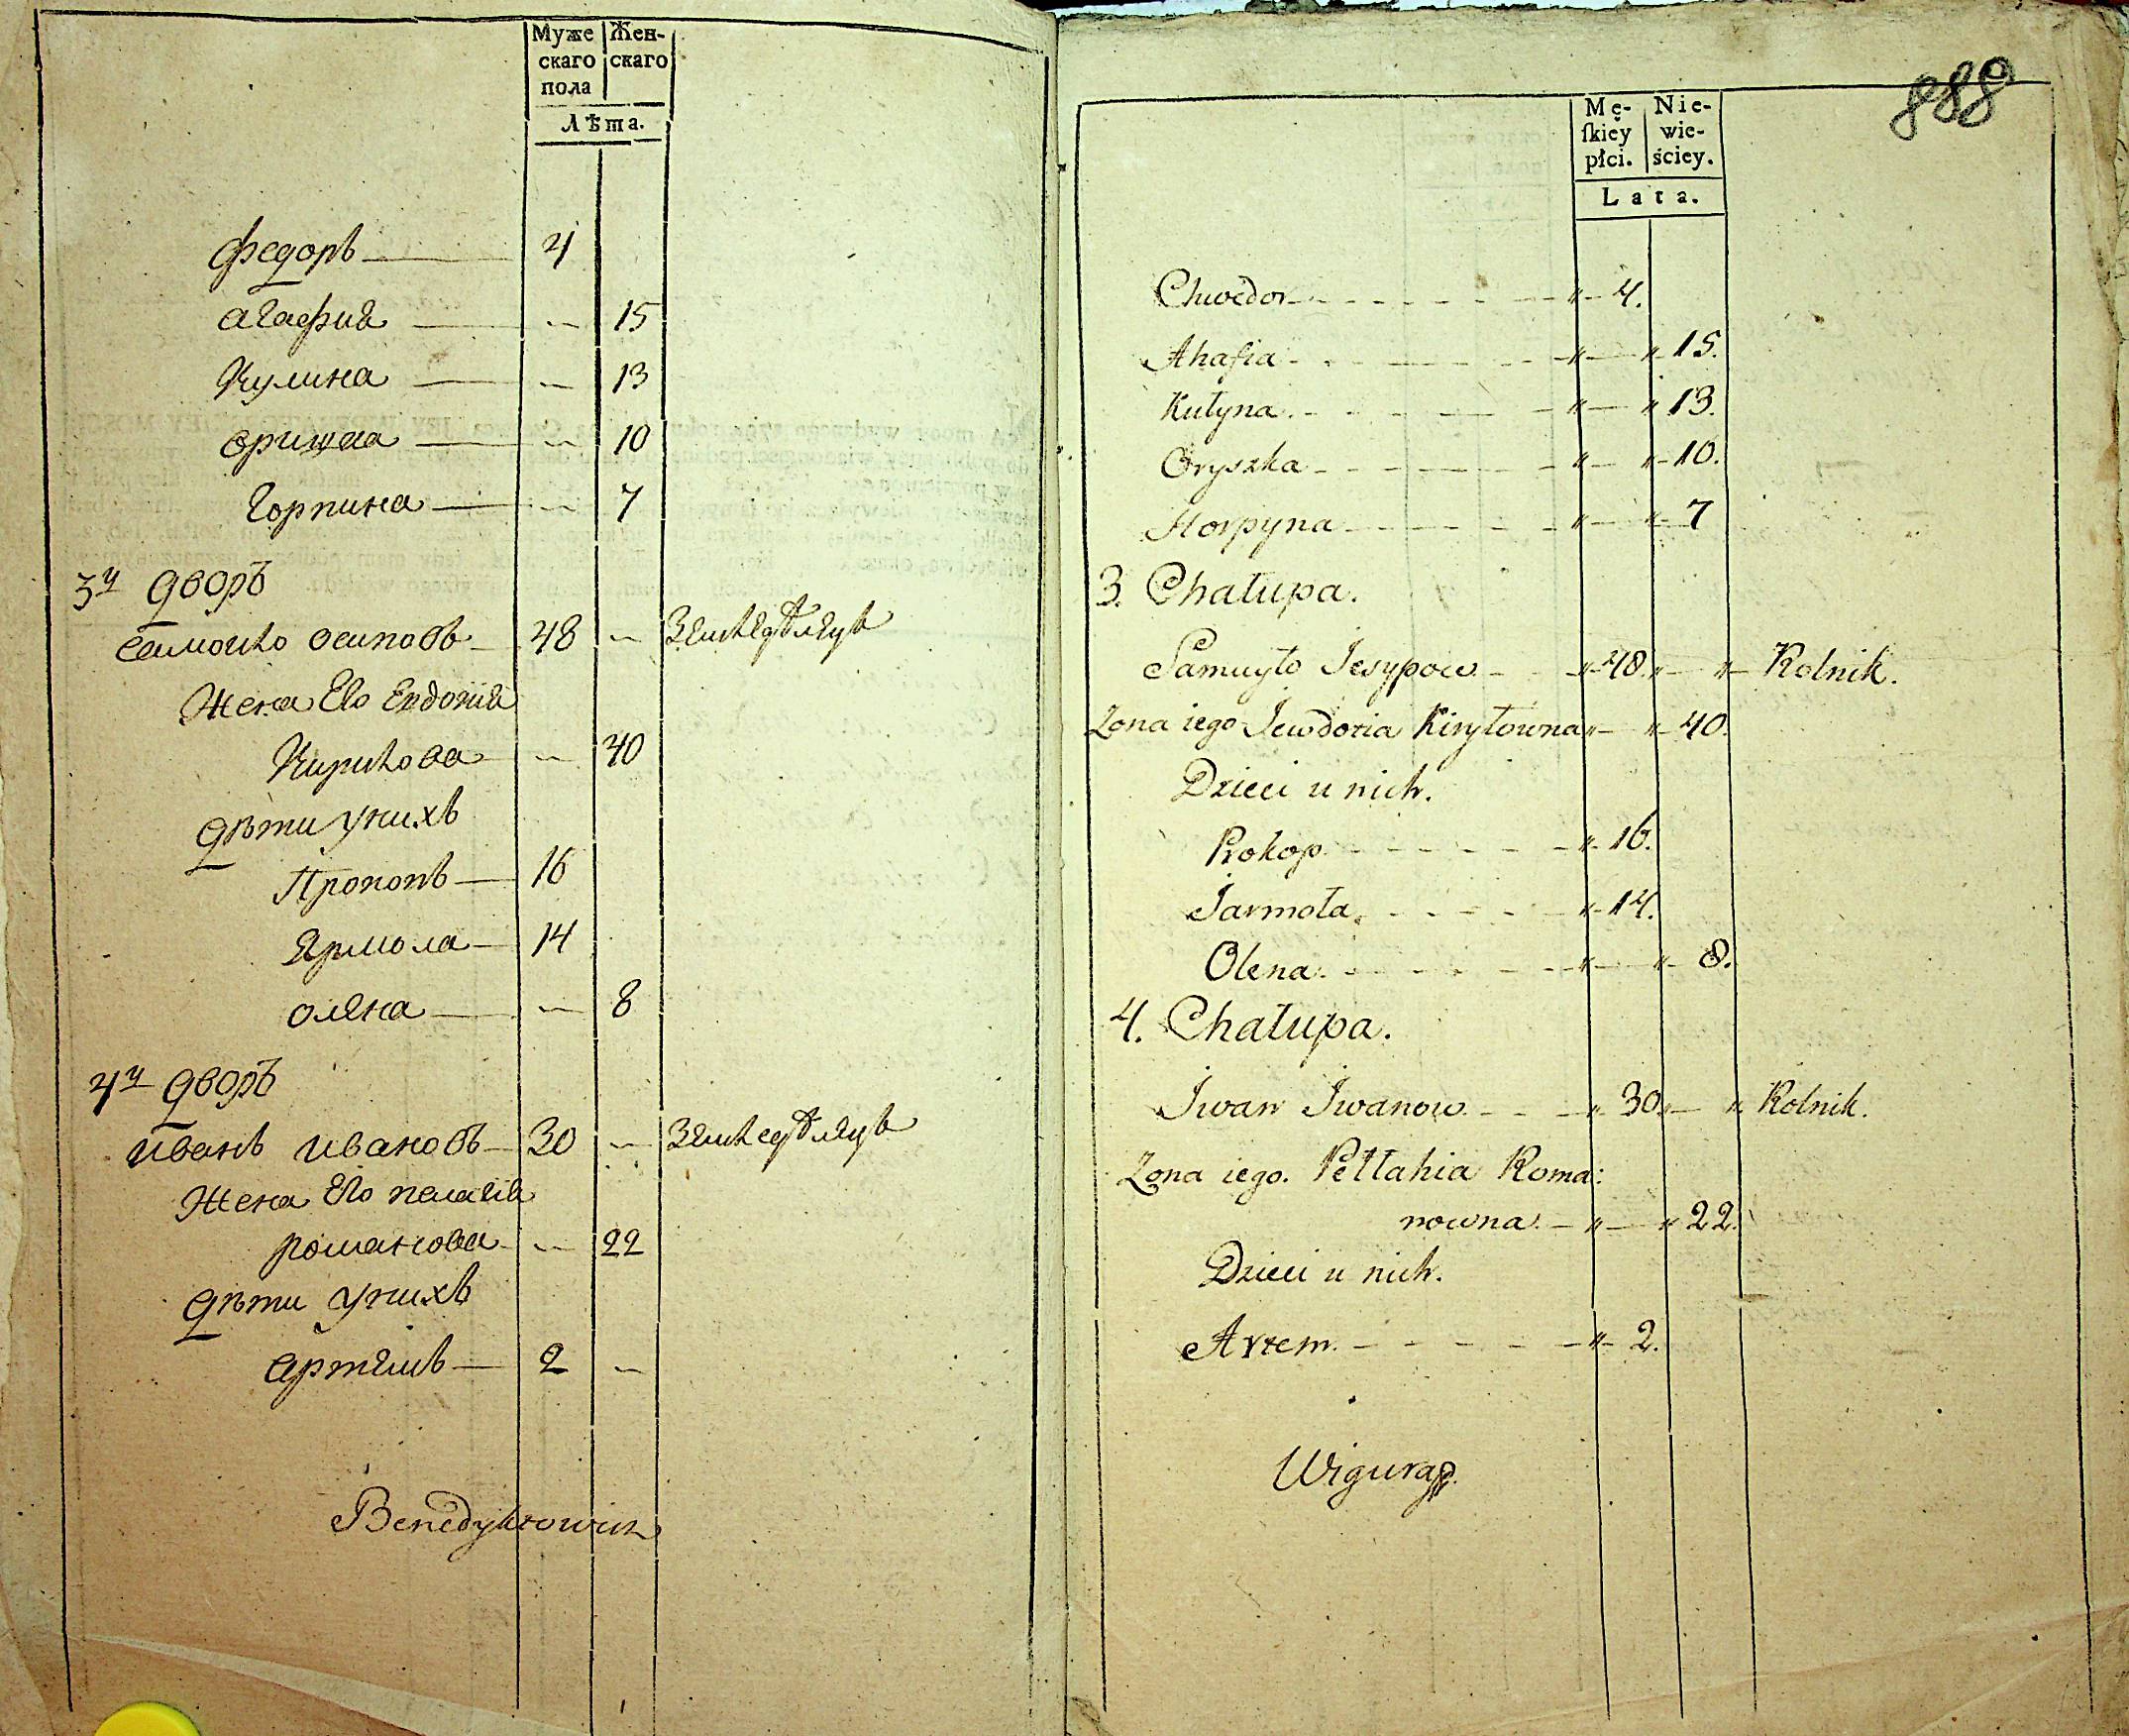 Муже Жен-
скаго скаго
пола
Лѣта.
Федоръ 4
Агафия 15
Кулина 13
Оришка 10
Горпина 7
3й дворъ
Самойло Осиповъ 48 Земледѣлецъ
Жена Его Евдокия
Кирилова 40
дѣти у нихъ
Прокопъ 16
Ярмола 14
Олена 8
4й дворъ
Иванъ Ивановъ 30 Земледѣлецъ
Жена Его пелагия
романова 22
дѣти у нихъ
Артемъ 2
Benedyktowicz
888
Mę- Nie-
ſkiey wie-
płci. ściey.
Lata.
Chwedor 4.
Ahafia 15.
Kułyna. 13.
Oryszka 10.
Horpyna 7
3. Chałupa.
Samuyło Jesypow 48. Rolnik.
Zona iego Jewdokia Kiryłowna 40.
Dzieci u nich.
Prokop 16.
Jarmoła 14.
Olena. 8.
4. Chałupa.
Jwan Jwanow 30 Rolnik.
Zona iego. Pełłahia Roma:
nowna. 22.
Dzieci u nich.
Artem. 2.
Wigura